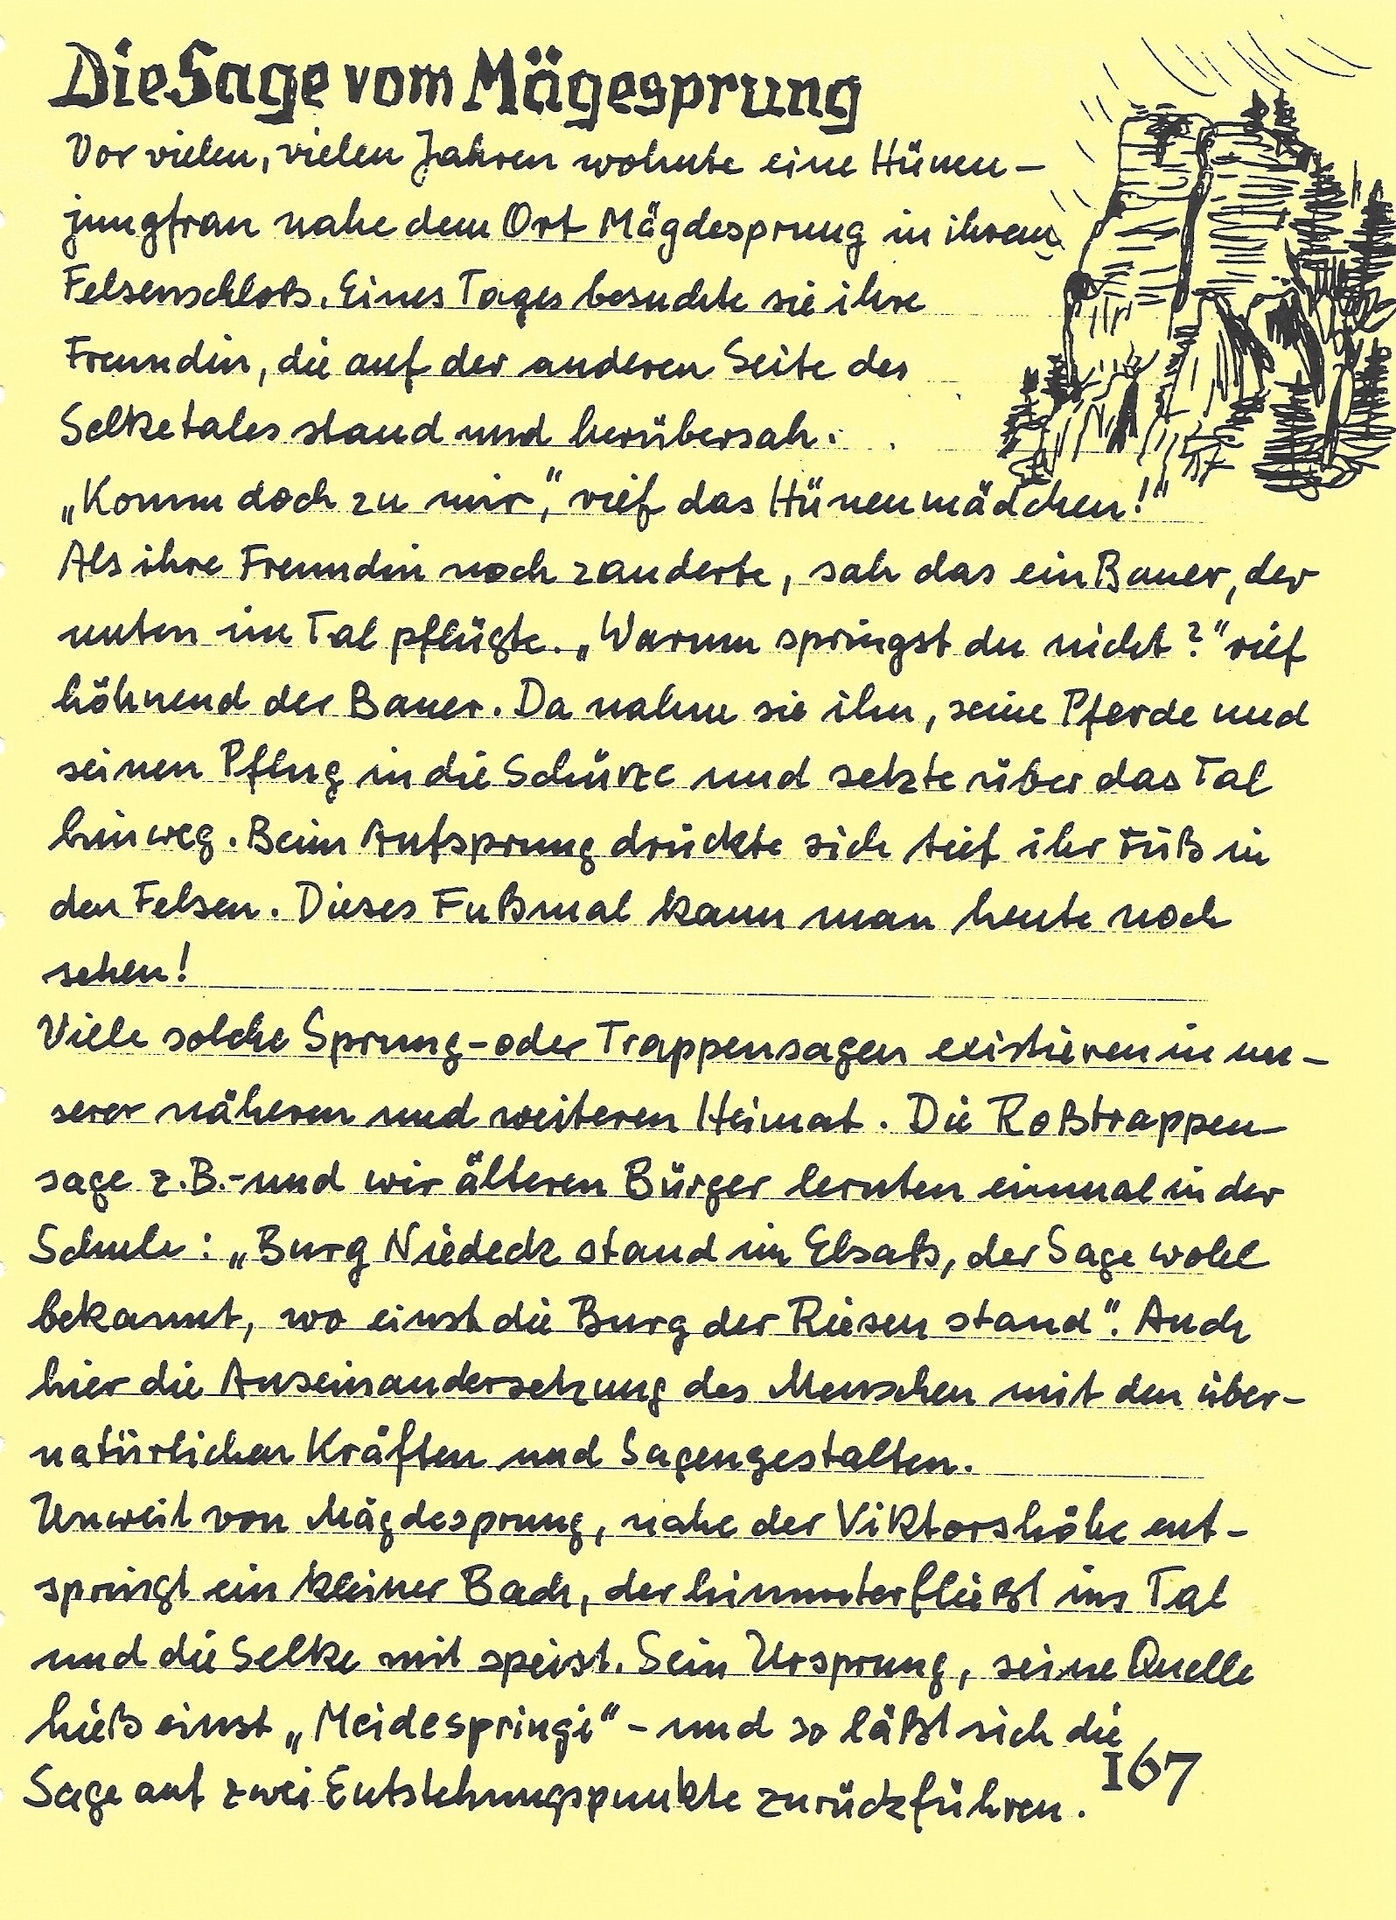 Die Sage vom Mägesprung
Vor vielen, vielen Jahren wohnte eine Hünen-
jungfrau nahe dem Ort Mägdesprung in ihrem
Felsenschloß. Eines Tages besuchte sie ihre
Freundin, die auf der anderen Seite des
Selketales stand und herübersah.
„Komm doch zu mir“, rief das Hünenmädchen!“
Als ihre Freundin noch zauderte, sah das ein Bauer, der
unten im Tal pflügte. „Warum springst du nicht?“ rief
höhnend der Bauer. Da nahm sie ihn, seine Pferde und
seinen Pflug in die Schürze und setzte über das Tal
hinweg. Beim Aufsprung drückte sich tief ihr Fuß in
den Felsen. Dieses Fußmal kann man heute noch
sehen!
Viele solche Sprung- oder Trappensagen existieren in un-
serer näheren und weiteren Heimat. Die Roßtrappen-
sage z.B.- und wir älteren Bürger lernten einmal in der
Schule: „Burg Niedeck stand im Elsaß, der Sage wohl
bekannt, wo einst die Burg der Riesen stand“. Auch
hier die Auseinandersetzung des Menschen mit den über-
natürlichen Kräften und Sagengestalten.
Unweit von Mägdesprung, nahe der Viktorshöhe ent-
springt ein kleiner Bach, der hinunterfließt ins Tal
und die Selke mit speist. Sein Ursprung, seine Quelle
hieß einst „Meidespringi“ - und so läßt sich die
Sage auf zwei Entstehungspunkte zurückführen.
167